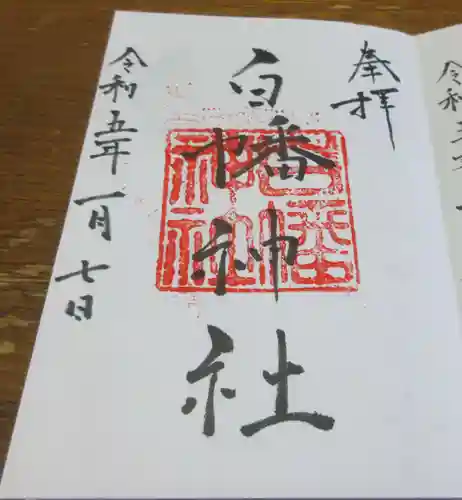 奉拝
白幡神社
令和五年一月七日
令和五年一